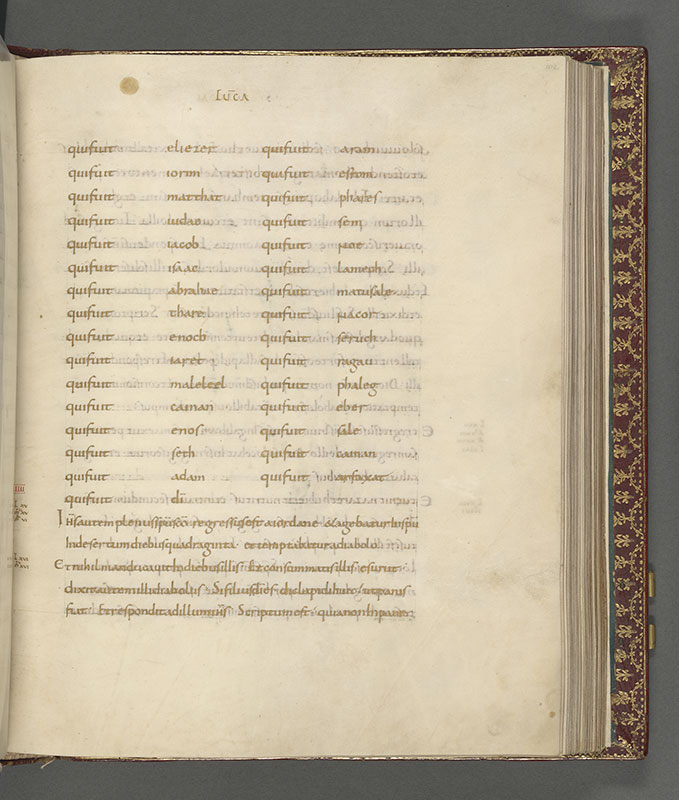 LUCA
qui fuit eliezer qui fuit aram
qui fuit iorim qui fuit esrom
qui fuit matthat qui fuit phares
qui fuit iudae qui fuit sem
qui fuit iacob qui fuit noe
qui fuit isaac qui fuit lamech
qui fuit abrahae qui fuit matusale
qui fuit thare qui fuit nacor
qui fuit enoch qui fuit seruch
qui fuit iaret qui fuit ragau
qui fuit maleleel qui fuit phaleg
qui fuit cainan qui fuit eber
qui fuit enos qui fuit sale
qui fuit seth qui fuit cainan
qui fuit adam qui fuit arfaxat
qui fuit dī
Ihs autem plenus spu sco regressus est a iordane & agebatur in spu
In desertum diebus quadraginta et temptabatur a diabolo
Et nihil manducauit In diebus illis Et consummatis illis esuriit
dixit autem illi diabolus Si filius di es dic lapidi huic ut panis
fiat Et respondit ad illum ihs Scriptum est quia non In pane